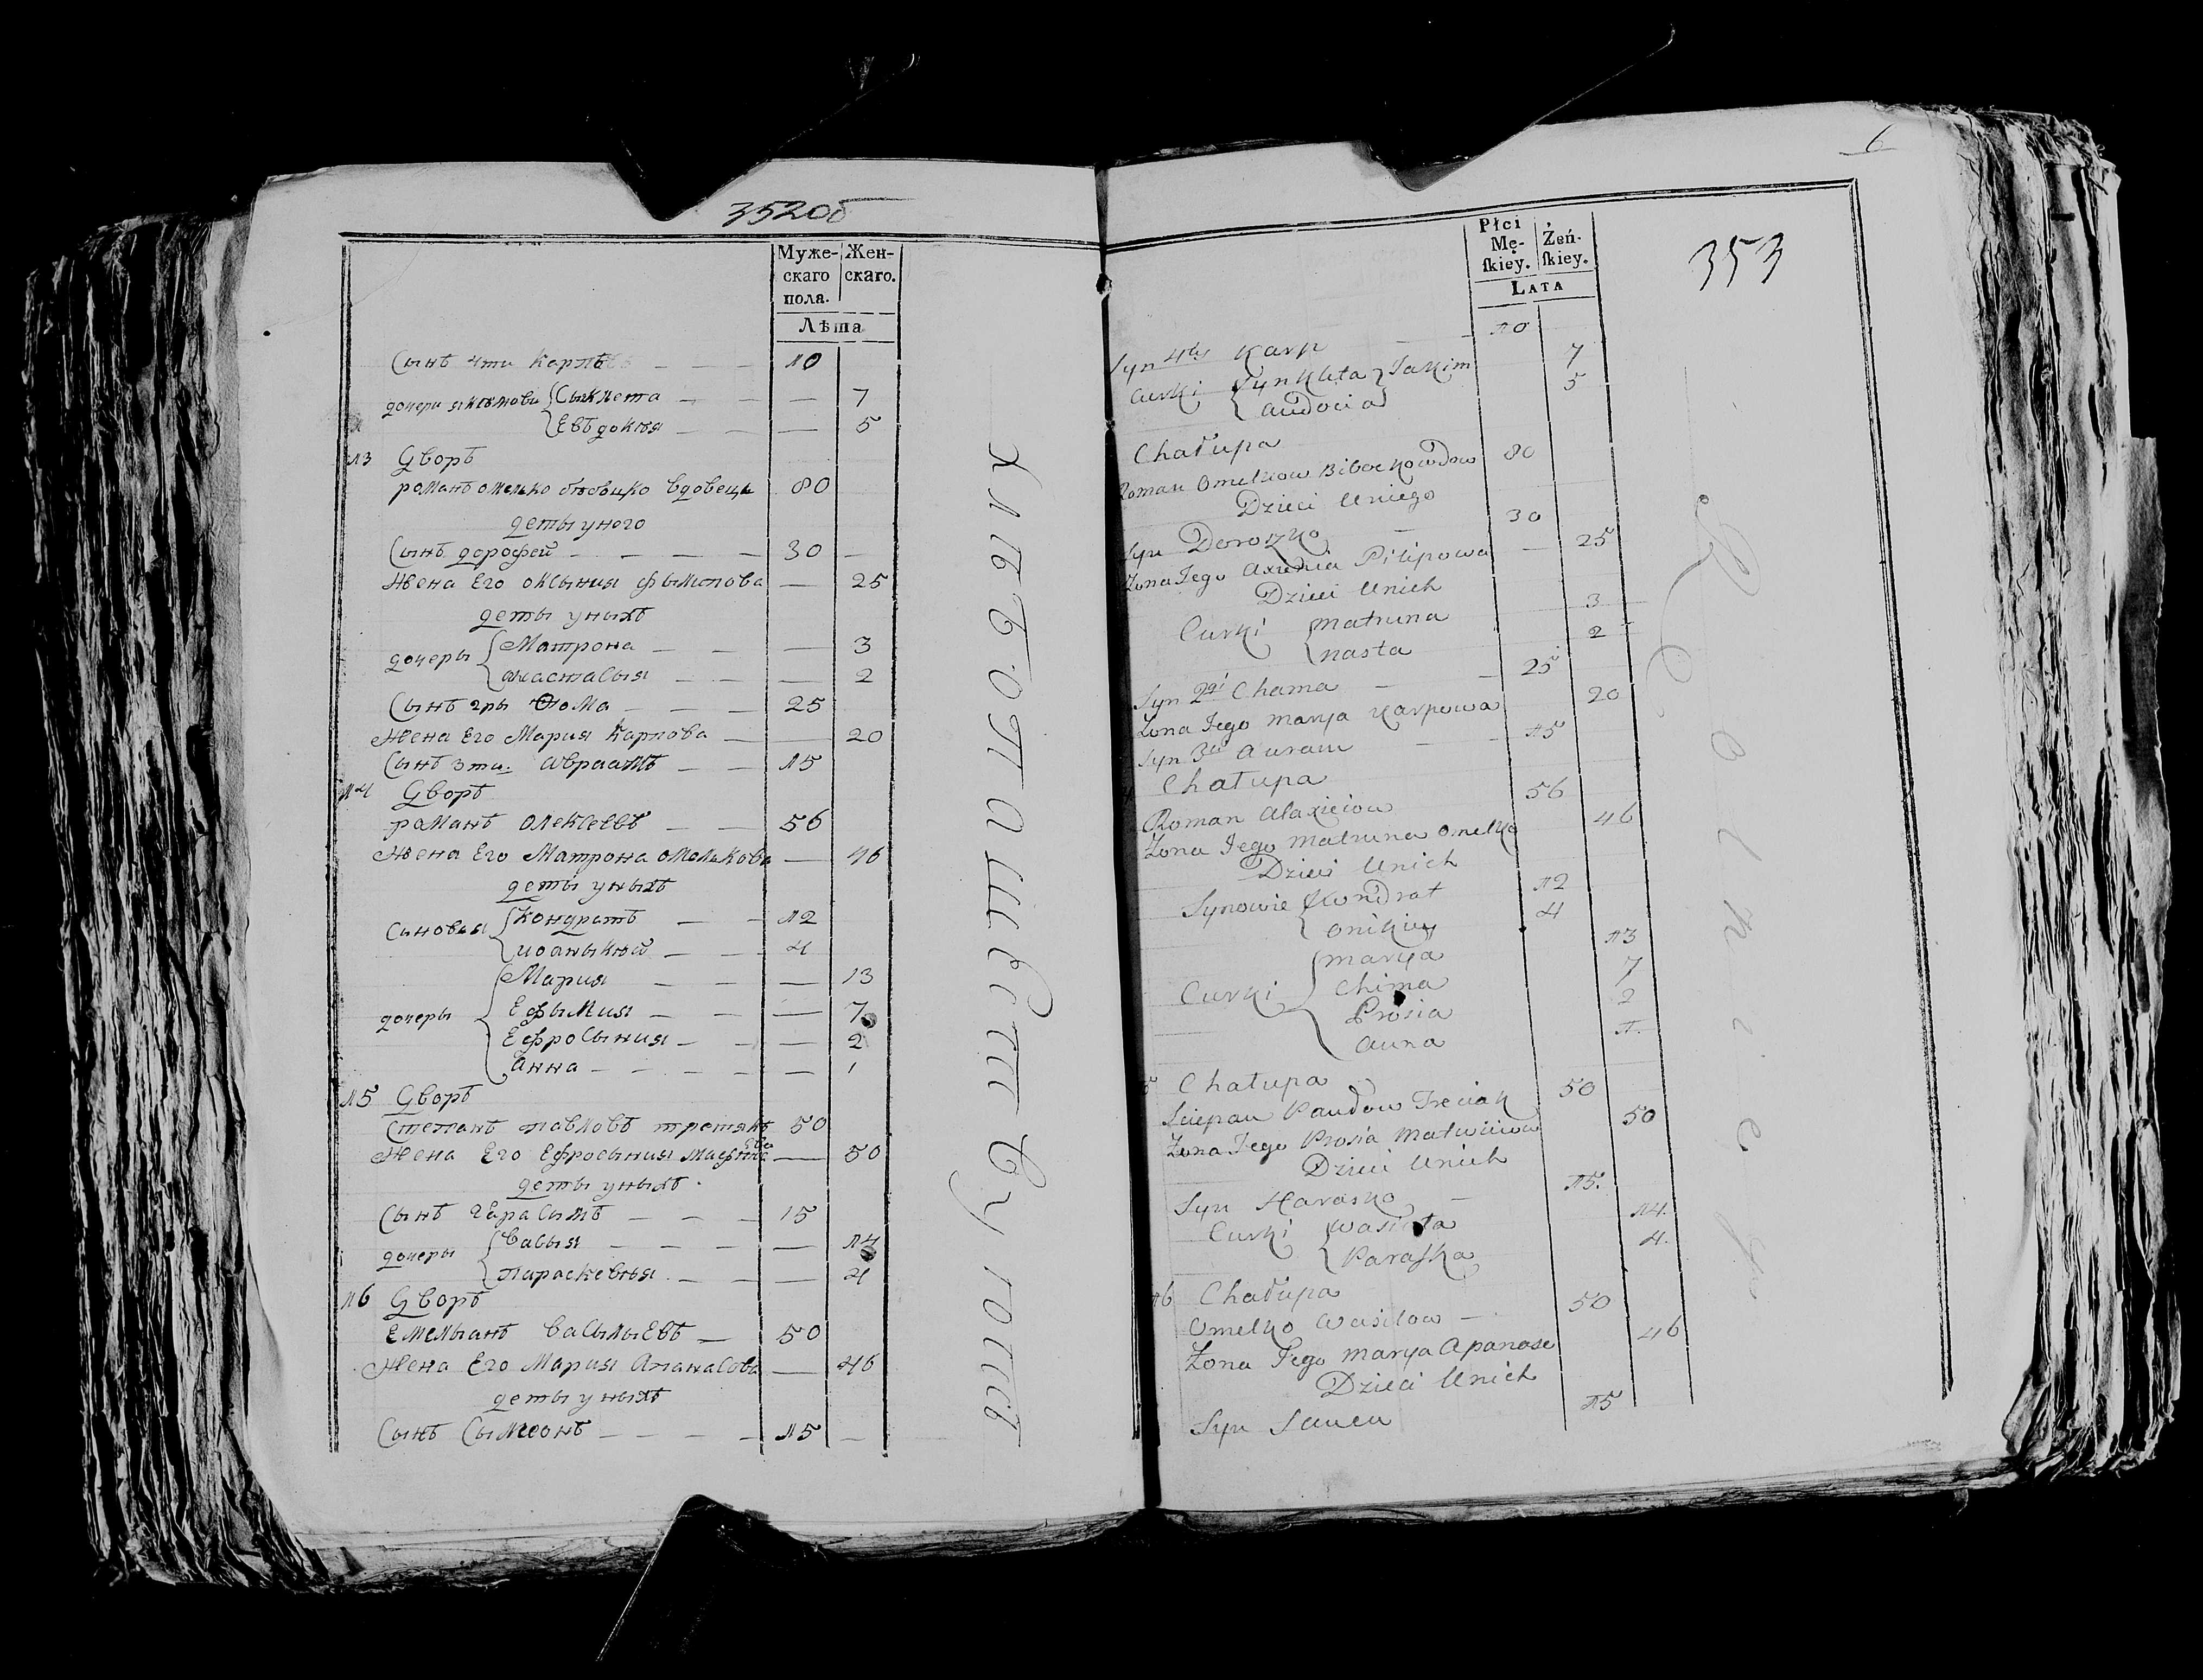 352об
Муже-скаго пола. Жен-скаго.
Лѣта
Сынъ 4ти Карпъ — — — 10
дочери якимови Сынклета — — — 7
Евъдокѣя — — — 5
13 Дворъ
романъ омелько бибвицо вдовецъ 80
деты унего
Сынъ дорофей — — — — 30 —
Жена Его оксыния фылипова — 25
деты уныхъ
дочеры Матрона — — — 3
анастасыя — — — 2
Сынъ 2ры Фома — — — 25
Жена Его Мария Карпова — — 20
Сынъ 3ти. авраамъ — — 15
14 Дворъ
романъ олексеевъ — — 56
Жена Его Матрона омелькова — 46
деты уныхъ
Сыновья Кондратъ — — 12
иоаныкѣй — — 4
дочеры Мария — — — 13
Ефымия — — — 7
Ефросыния — — — 2
Анна — — — — — 1
15 Дворъ
Степанъ павловъ третякъ 50
Жена Его Ефросыния — 50
деты уныхъ.
Сынъ герасымъ — — — 15
дочеры Васыя — — — — 14
параскевѣя — — — 4
16 Дворъ
Емельянъ Васыльевъ — 50
Жена Его Мария Апанасова — 46
деты уныхъ
Сынъ Сымеонъ — — — — 15 —
хлѣбопашестъвуютъ
6
353
Płci Mę-ſkiey. Żeń-ſkiey.
LATA
Syn 4ty Karp — — 10
Curki Synkleta Jakim 7
Audocia 5
Chałupa
Roman Omelkow 80
Dzieci Uniego
Syn Doroszko — 30
Zona Jego Axinia Pilipowa — 25
Dzieci Unich
Curki Matruna 3
Nasta 2
Syn 2gi Chama — — 25
Zona Jego Marya Karpowa 20
Syn 3ci Auram — — 15
Chałupa
Roman Alaxieiow 56
Zona Jego Matruna Omelko 46
Dzieci Unich
Synowie Kondrat 12
Onikiey 4
Curki Marya 13
Chima 7
Prosia 2
Anna 1.
5 Chałupa
Sciepan Paudow Treciak 50
Zona Jego Prosia Matwiiowa 50
Dzieci Unich
Syn Harasko — 15.
Curki Wasiuta 14.
Paraſka 4.
16 Chałupa
Omelko Wasilow — 50
Zona Jego Marya Apanase 46
Dzieci Unich
Syn Samen 15
Rolnicy